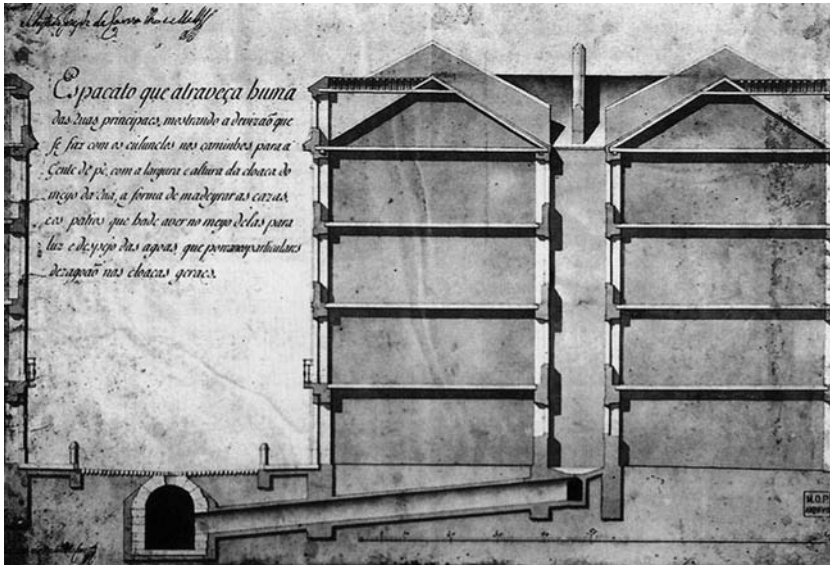 Espacato que atraveça huma
das Ruas principaes, mostrando a devizaõ que
se faz com os culunelos nos caminhos para a
Gente de pé, com a largura e altura da cloaca do
meyo da Rua, a forma de madeyrar as cazas,
e os patios que hade aver no meyo delas para
luz e despejo das agoas, que por canos particulares
dezagoaõ nas cloacas geraes.
10 20 30 40 50
M.O.P.